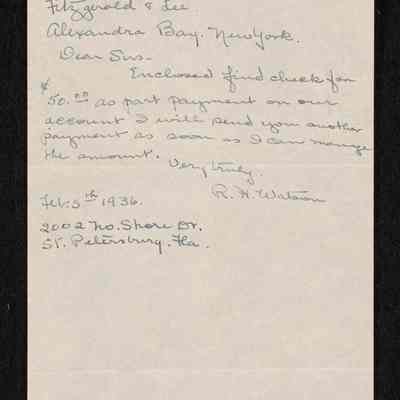 Fitzgerald & Lee
Alexandra Bay. New York.
Dear Sirs-
Enclosed find check for
$50.00 as part payment on our
account I will send you another
payment as soon as I can manage
the amount.
Very truly.
R. H. Watson
Feb. 5th 1936.
2002 No. Shore Dr.
St. Petersburg. Fla.